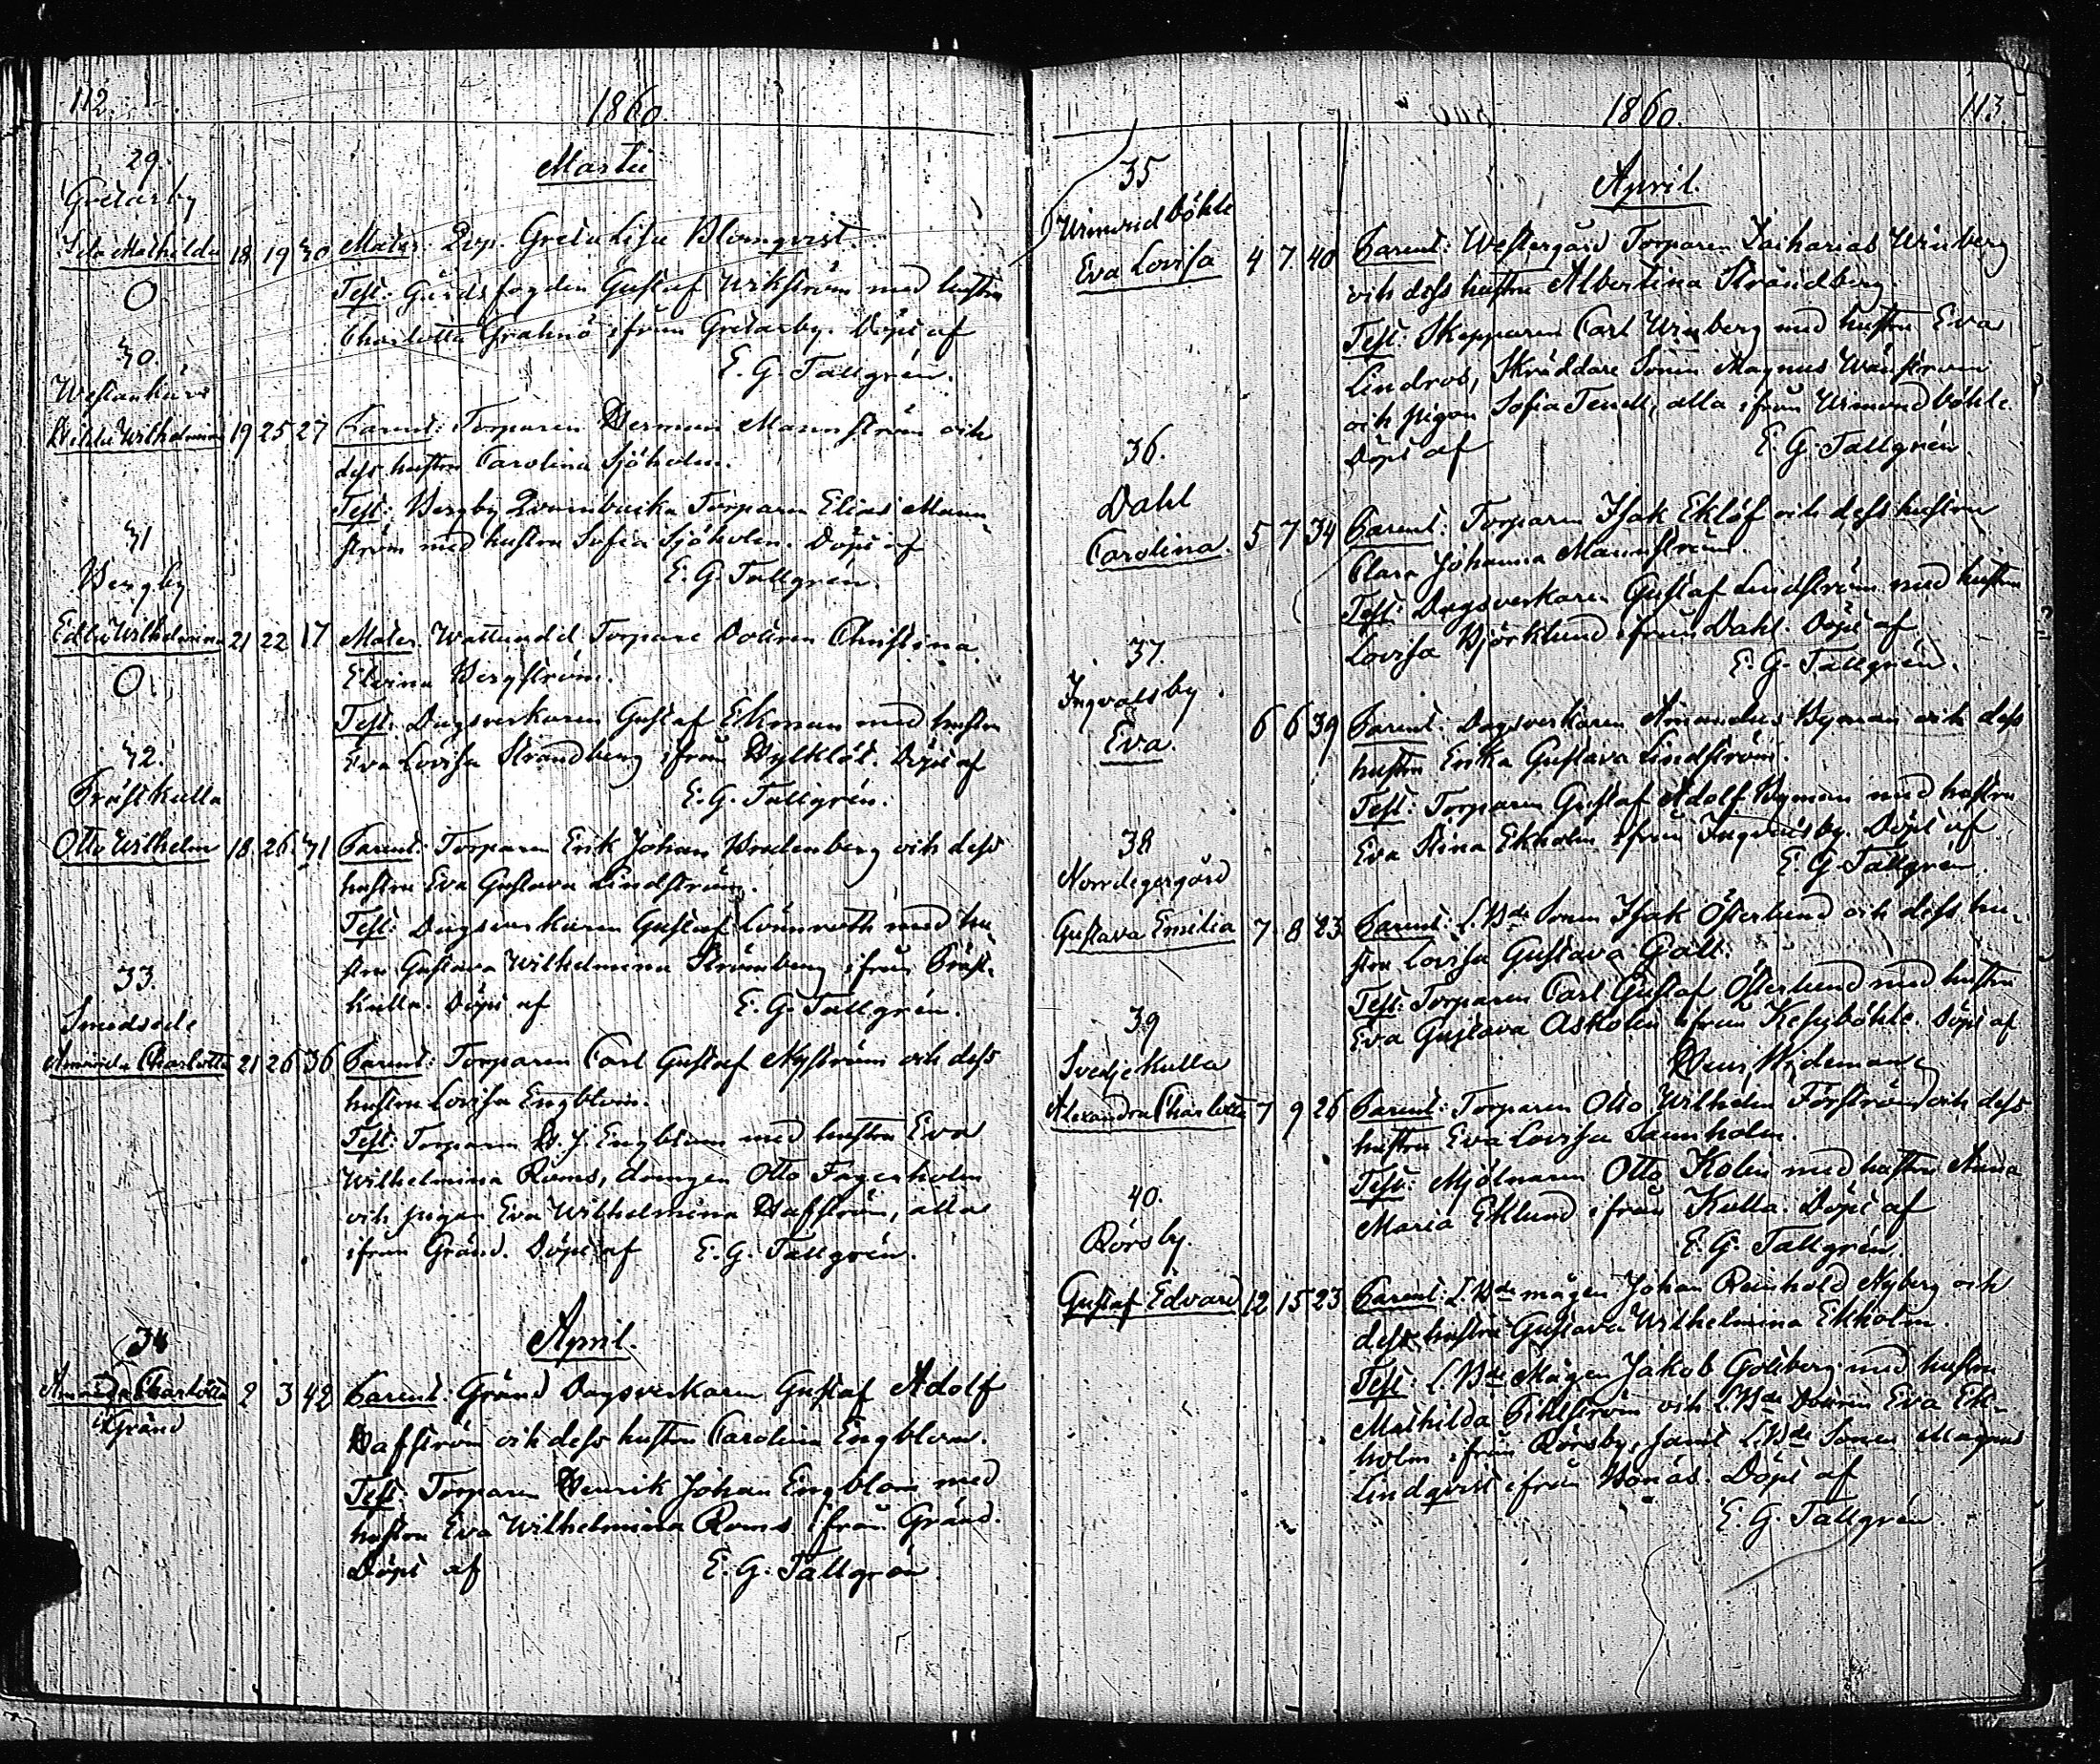 112.
1860.
Martii
29.
Gretarby
Ida Mathilda 18 19 30 Mater: Pig. Greta Lisa Blomqvist.
Test: Gårdsfogden Gustaf Wikström med hustru
Charlotta Grahnö ifrån Gretarby. Döpt af
E. G. Tallgrén.
30.
Westankärr
Hilda Wilhelmina 19 25 27 Parent: Torparen Herman Mannström och
dess hustru Carolina Sjöholm.
Test: Bergby Torparen Elias Mann-
ström med hustru Sofia Sjöholm. Döpt af
E. G. Tallgrén.
31
Bergby
Edla Wilhelmina 21 22 17 Mater. Torpare Dottren Christina
Elvina Bergström.
Test: Dagsverkaren Gustaf Ekman med hustru
Eva Lovisa Strandberg ifrån. Döpt af
E. G. Tallgrén.
32.
Prästkulla
Otto Wilhelm 18. 26. 31 Parent: Torparen Erik Johan Bredenberg och dess
hustru Eva Gustava Lindström.
Test: Dagsverkaren Gustaf Lönnroth med hu-
stru Gustava Wilhelmina Strömberg ifrån Präst-
kulla. Döpt af E. G. Tallgrén.
33.
Smedsede
Amanda Charlotta 21 26 36 Parent: Torparen Carl Gustaf Nyström och dess
hustru Lovisa Engblom.
Test: Torparen H. J. Engblom med hustru Eva
Wilhelmina Roms, drengen Otto Fagerholm
och pigan Eva Wilhelmina Hafström, alla
ifrån Gränd. Döpt af E. G. Tallgrén.
April.
34
Amanda Charlotta 2 3 42 Parent: Gränd Dagsverkaren Gustaf Adolf
i Gränd
Hafström och dess hustru Carolina Engblom.
Test: Torparen Henrik Johan Engblom med
hustru Eva Wilhelmina Roms ifrån Gränd.
Döpt af E. G. Tallgrén
1860.
113.
April.
35
Eva Lovisa 4 7. 40 Parent: Westergård Torparen Zacharias Winberg
och dess hustru Albertina Strandberg.
Test: Skepparen Carl Winberg med hustru Eva
Lindros, Skräddare Sonen Magnus Wänström
och pigan Sofia Tenell, alla ifrån
Döpt af E. G. Tallgrén
36.
Dahl
Carolina. 5 7 34 Parent: Torparen Isak Eklöf och dess hustru
Clara Johanna Mannström.
Test: Dagsverkaren Gustaf Lindström med hustru
Lovisa Björklund ifrån Dahl. Döpt af
E. G. Tallgrén.
37.
Ingvalsby.
Eva. 6 6 39 Parent: Dagsverkaren Amandus Nyman och dess
hustru Erika Gustava Lindström.
Test: Torparen Gustaf Adolf Nyman med hustru
Eva Stina Ekholm ifrån Ingvalsby. Döpt af
E. G. Tallgrén.
38
Norrdegergård
Gustava Emilia 7. 8 23 Parent: L. Bde Sonen Isak Österlund och dess hu-
stru Lovisa Gustava Gall.
Test: Torparen Carl Gustaf Österlund med hustru
Eva Gustava Askolin ifrån. Döpt af
Henr. Wideman
39
Svedjekulla
Alexandra Charlotta 7 9 26 Parent: Torparen Otto Wilhelm Förström och dess
hustru Eva Lovisa Sannholm.
Test: Mjölnaren Otto Kolin med hustru Anna
Maria Eklund ifrån Kulla. Döpt af
E. G. Tallgrén.
40.
Rörsby.
Gustaf Edvard 12 15 23 Parent: L. Bde mågen Johan Reinhold Nyberg och
dess hustru Gustava Wilhelmina Ekholm.
Test: L. Bde Mågen Jakob Gottberg med hustru
Mathilda Pihlström och L. Bde Dottren Eva Ek-
holm ifrån Rörsby, samt L. Bde Sonen Magnus
Lindqvist ifrån Bonäs. Döpt af
E. G. Tallgrén.